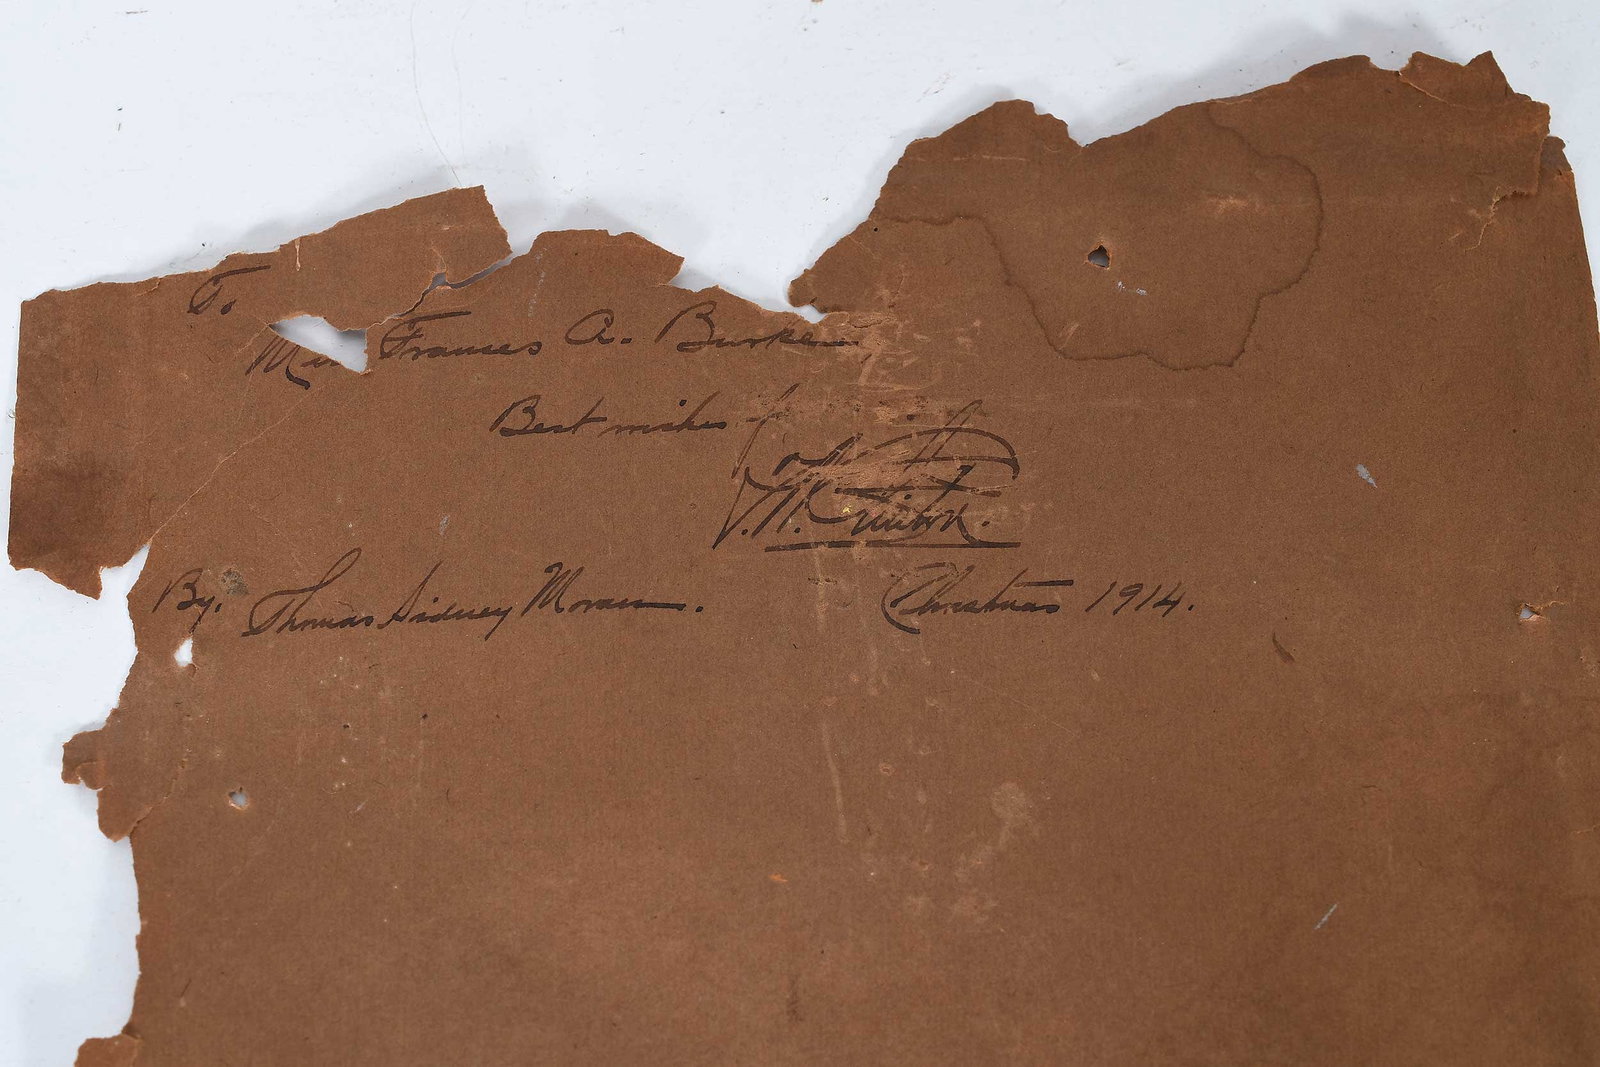 To.
Miss Frances A. Burke
Best wishes
By. Thomas Sidney Moran. Christmas 1914.